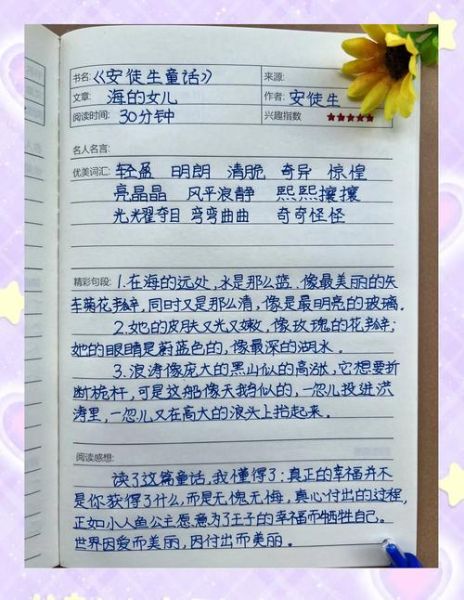 书名:《安徒生童话》 来源:
文章: 海的女儿 作者: 安徒生
阅读时间: 30分钟 兴趣指数 ★★★★★
名人名言:
优美词汇: 轻盈 明朗 清脆 奇异 惊惶
亮晶晶 风平浪静 熙熙攘攘
光光耀夺目 弯弯曲曲 奇奇怪怪
精彩句段: 1.在海的远处,水是那么蓝,像最美丽的矢
车菊花瓣,同时又是那么清,像是最明亮的玻璃。
2.她的皮肤又光又嫩,像玫瑰的花瓣;
她的眼睛是蔚蓝色的,像最深的湖水。
3.浪涛像庞大的黑山似的高涨,它想要折
断桅杆,可是这船像天鹅似的,一忽儿投进洪
涛里,一忽儿又在高大的浪头上抬起来。
阅读感想:
读了这篇童话,我懂得了:真正的幸福并不
是你获得了什么,而是无愧无悔,真心付出的过程,
正如小人鱼公主愿意为了王子的幸福而牺牲自己。
世界因爱而美丽,因付出而美丽。